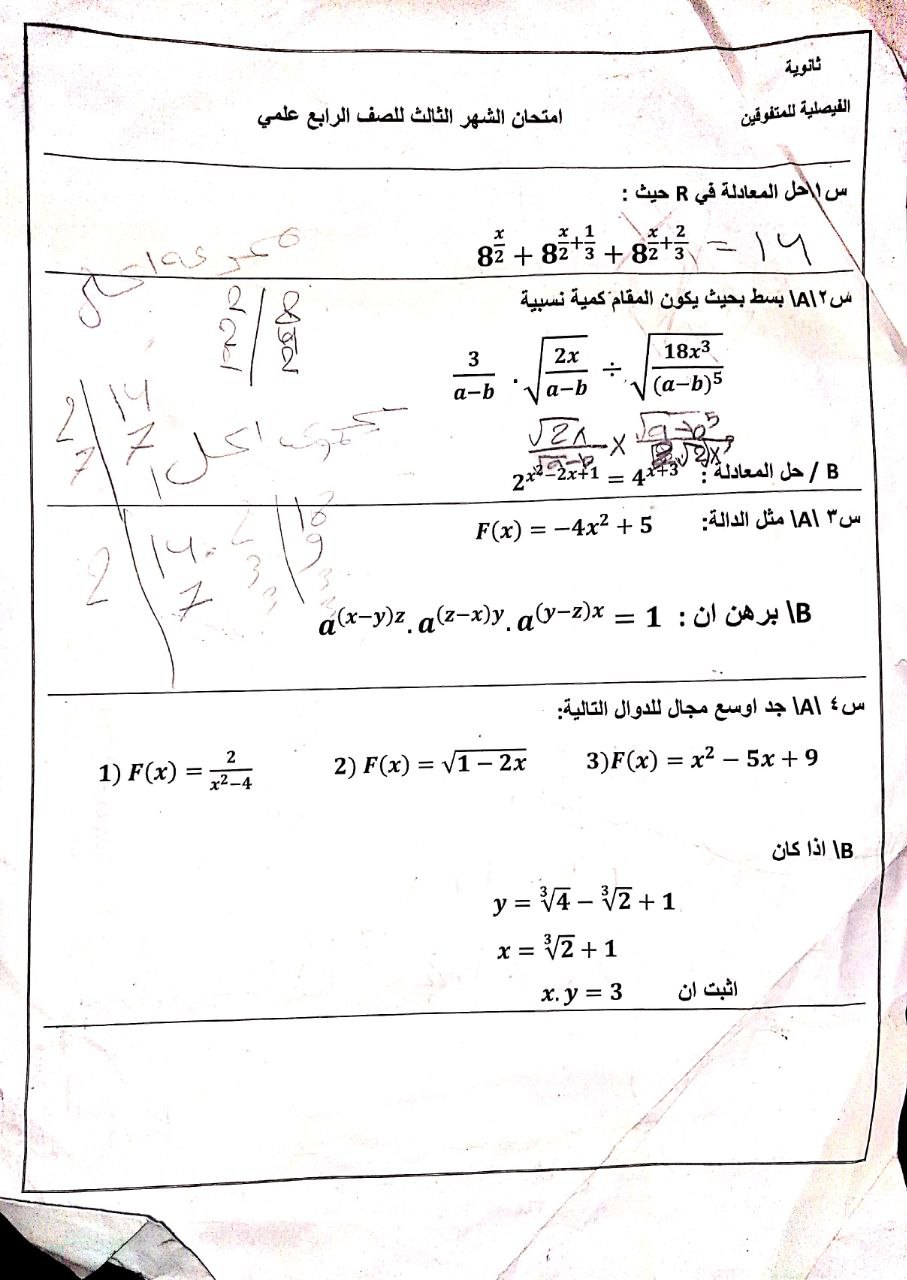 ثانوية
الفيصلية للمتفوقين
امتحان الشهر الثالث للصف الرابع علمي
س١\حل المعادلة في R حيث :
8^{x/2} + 8^{x/2+1/3} + 8^{x/2+2/3} = 14
س٢\A\ بسط بحيث يكون المقام كمية نسبية
3/(a−b) . √(2x/(a−b)) ÷ √(18x³/(a−b)⁵)
B / حل المعادلة : 2^{x²−2x+1} = 4^{x+3}
س٣ \A\ مثل الدالة: F(x) = −4x² + 5
B\ برهن ان : a^{(x−y)z} . a^{(z−x)y} . a^{(y−z)x} = 1
س٤ \A\ جد اوسع مجال للدوال التالية:
1) F(x) = 2/(x²−4) 2) F(x) = √(1 − 2x) 3)F(x) = x² − 5x + 9
B\ اذا كان
y = ∛4 − ∛2 + 1
x = ∛2 + 1
اثبت ان x. y = 3